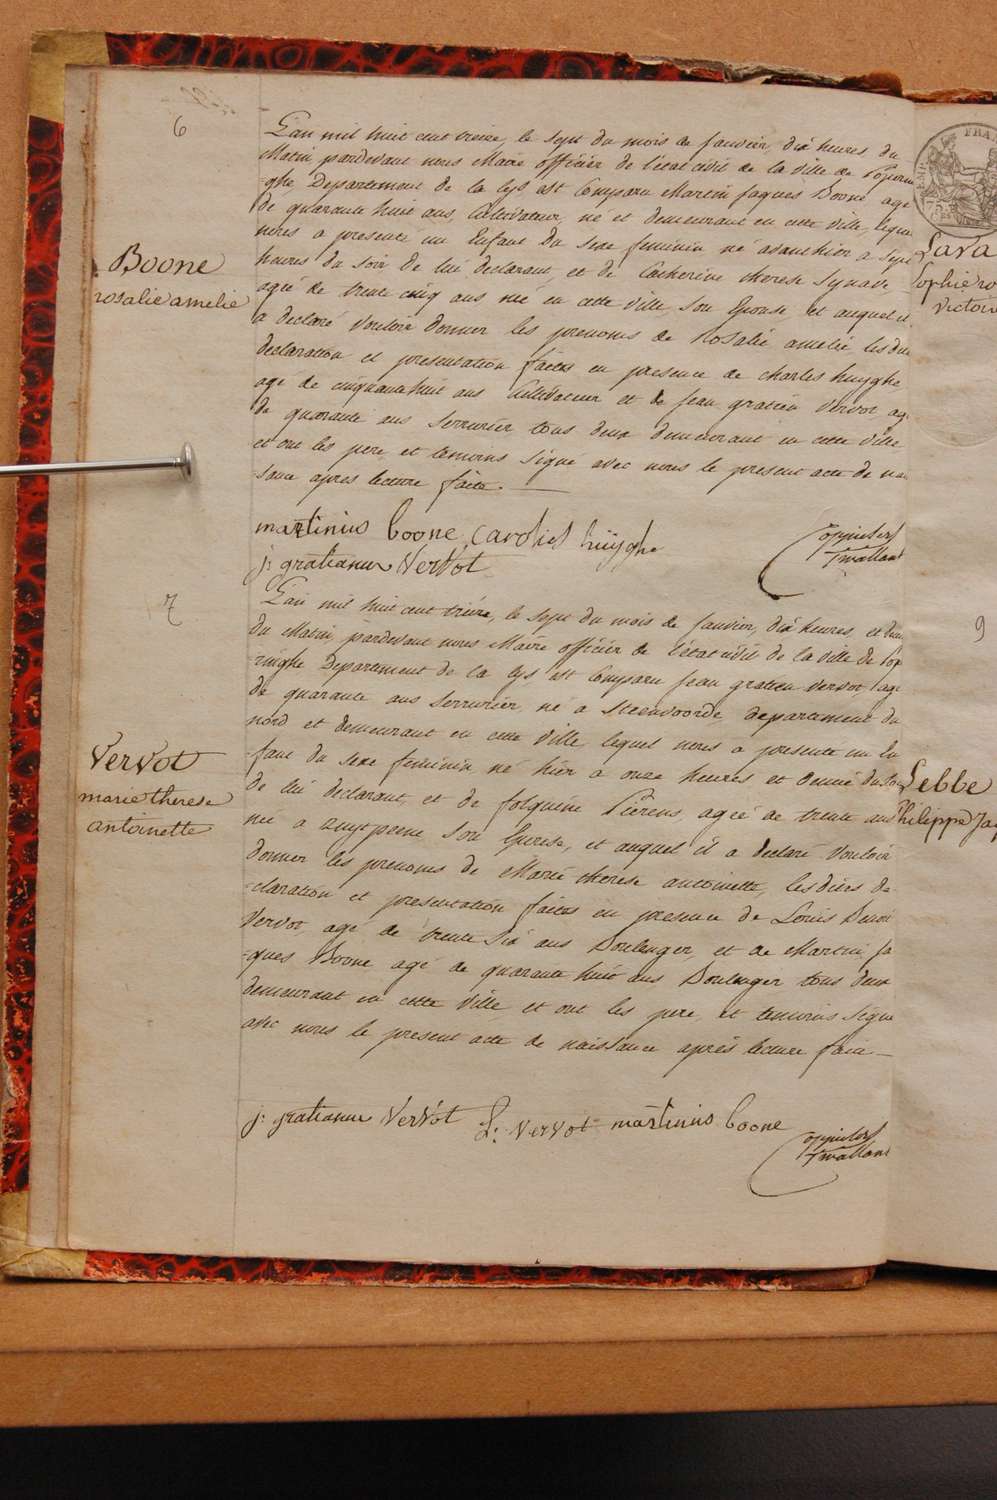 6
Boone
rosalie amelie
L'an mil huit cent treize, le sept du mois de Janvier, dix heures du
Matin, pardevant nous Maire officier de l'état civil de la ville de Poperin
-ghe Departement de la Lys est Comparu Martin Jaques Boone, agé
de quarante huit ans, Cultivateur, né et demeurant en cette ville, lequel
nous a presenté un Enfant du sexe feminin né avant hier a sept
heures du soir de lui declarant, et de Catherine therese Synave
agée de trente cinq ans née en cette ville, son Epouse et auquel il
a declaré vouloir donner les prenoms de rosalie amelie, les dite
declaration et presentation faites en presence de charles huyghe,
agé de cinquante huit ans Cultivateur et de Jean gratien Vervot ag.
de quarante ans serrurier tous deux demeurant en cette ville
et ont les pere et temoins signé avec nous le present acte de nais
-sance apres lecture faite.
martinius boone carolus huyghe
j: gratianus Vervot
7
Vervot
marie therese
antoinette
L'an mil huit cent treize, le sept du mois de Janvier, dix heures, et demi
du Matin, pardevant nous Maire officier de l'état civil de la ville de Pop
-ringhe Departement de la Lys est Comparu Jean gratien Vervot, agé
de quarante ans serrurier, né a Steenvoorde, departement du
nord et demeurant en cette ville, lequel nous a presenté un En
-fant du sexe feminin né hier a onze heures et demie du Soir
de lui declarant, et de folquine Pierens, agée de trente ans
née a son Epouse, et auquel il a declaré vouloir
donner les prenoms de Marie therese antoinette, les dites de
-claration et presentation faites en presence de Louis
Vervot, agé de trente Six ans Boulanger, et de Martin Ja
-ques Boone agé de quarante huit ans Boulanger tous deux
demeurant en cette ville et ont les pere, et temoins signé
avec nous le present acte de naissance après lecture faite
j: gratianus Vervot L: Vervot martinius boone
FRA
Lava
Sophie ro
victoire
9
Lebbe
Philippe Jaq